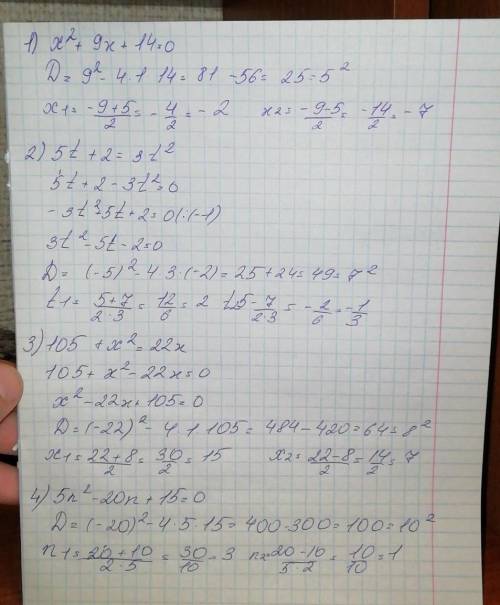 1) x² + 9x + 14 = 0
D = 9² - 4·1·14 = 81 - 56 = 25 = 5²
x₁ = (-9+5)/2 = -4/2 = -2    x₂ = (-9-5)/2 = -14/2 = -7
2) 5t + 2 = 3t²
5t + 2 - 3t² = 0
-3t² + 5t + 2 = 0 (:(-1)
3t² - 5t - 2 = 0
D = (-5)² - 4·3·(-2) = 25 + 24 = 49 = 7²
t₁ = (5+7)/(2·3) = 12/6 = 2    t₂ = (5-7)/(2·3) = -2/6 = -1/3
3) 105 + x² = 22x
105 + x² - 22x = 0
x² - 22x + 105 = 0
D = (-22)² - 4·1·105 = 484 - 420 = 64 = 8²
x₁ = (22+8)/2 = 30/2 = 15    x₂ = (22-8)/2 = 14/2 = 7
4) 5n² - 20n + 15 = 0
D = (-20)² - 4·5·15 = 400 - 300 = 100 = 10²
n₁ = (20+10)/(2·5) = 30/10 = 3    n₂ = (20-10)/(5·2) = 10/10 = 1